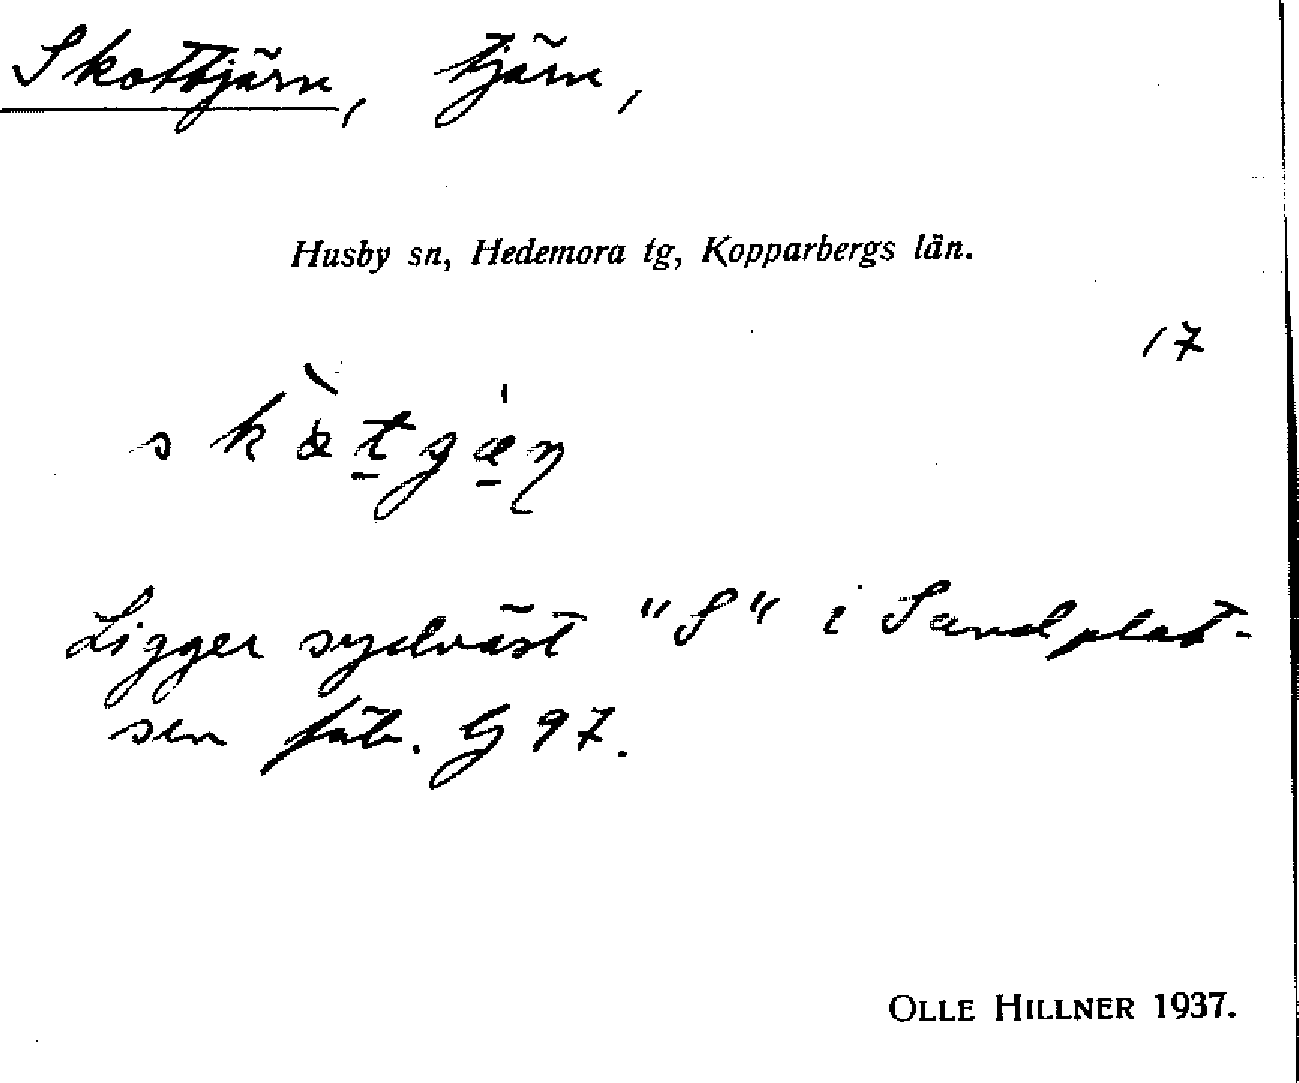 Skottjärn, tjärn,
Husby sn, Hedemora tg, Kopparbergs län.
17
Ligger sydväst "S" i Sandplat-
sen fäb. G 97.
OLLE HILLNER 1937.